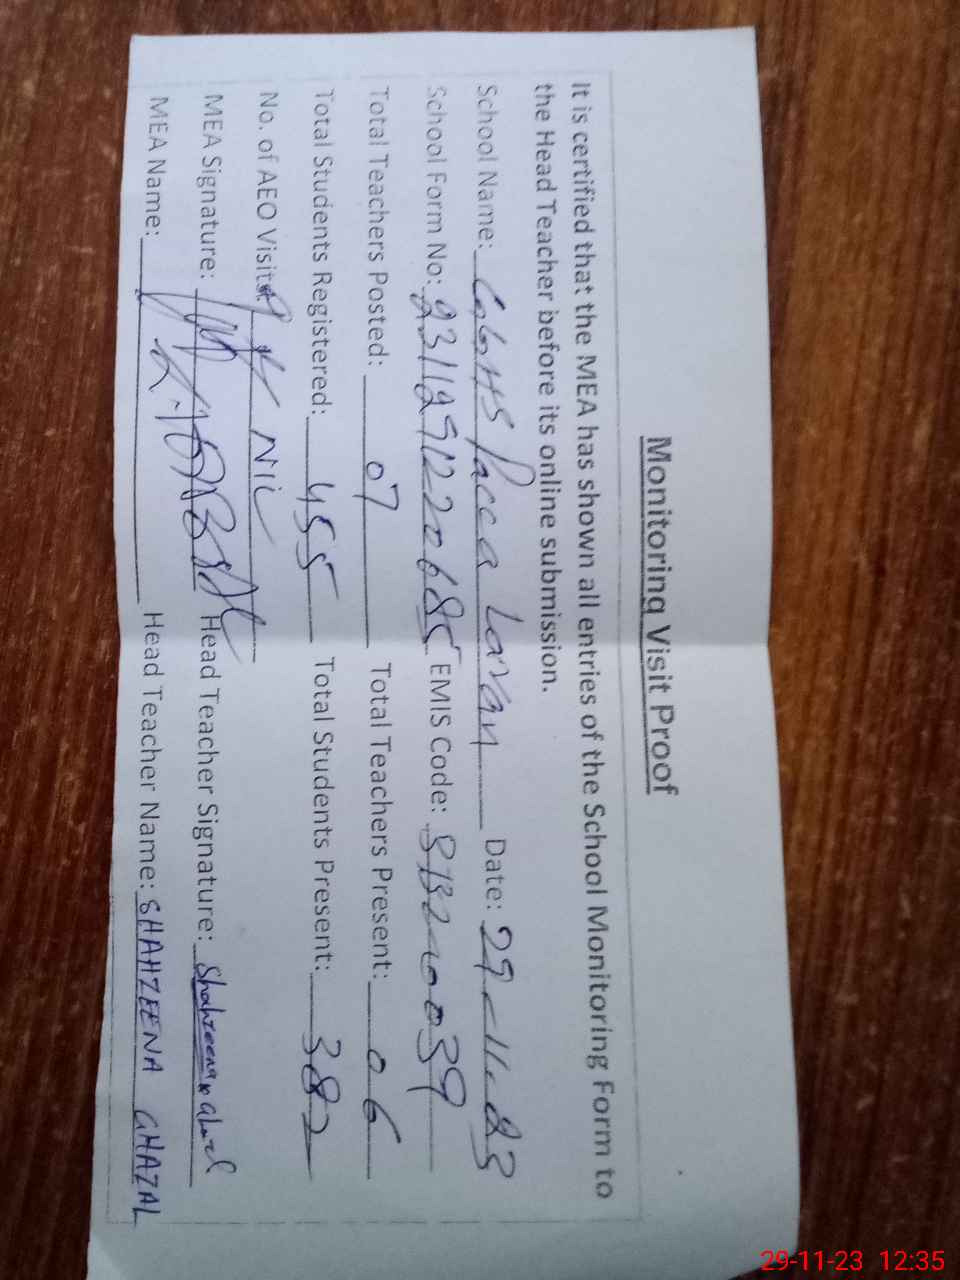 Monitoring Visit Proof
It is certified that the MEA has shown all entries of the School Monitoring Form to
the Head Teacher before its online submission.
School Name: GGHS Pacca Laran Date: 29-11-23
School Form No: EMIS Code:
Total Teachers Posted: 07 Total Teachers Present: 06
Total Students Registered: 455 Total Students Present: 382
No. of AEO Visits: NIL
MEA Signature: Head Teacher Signature:
MEA Name: Head Teacher Name: SHAHZEENA GHAZAL
29-11-23 12:35